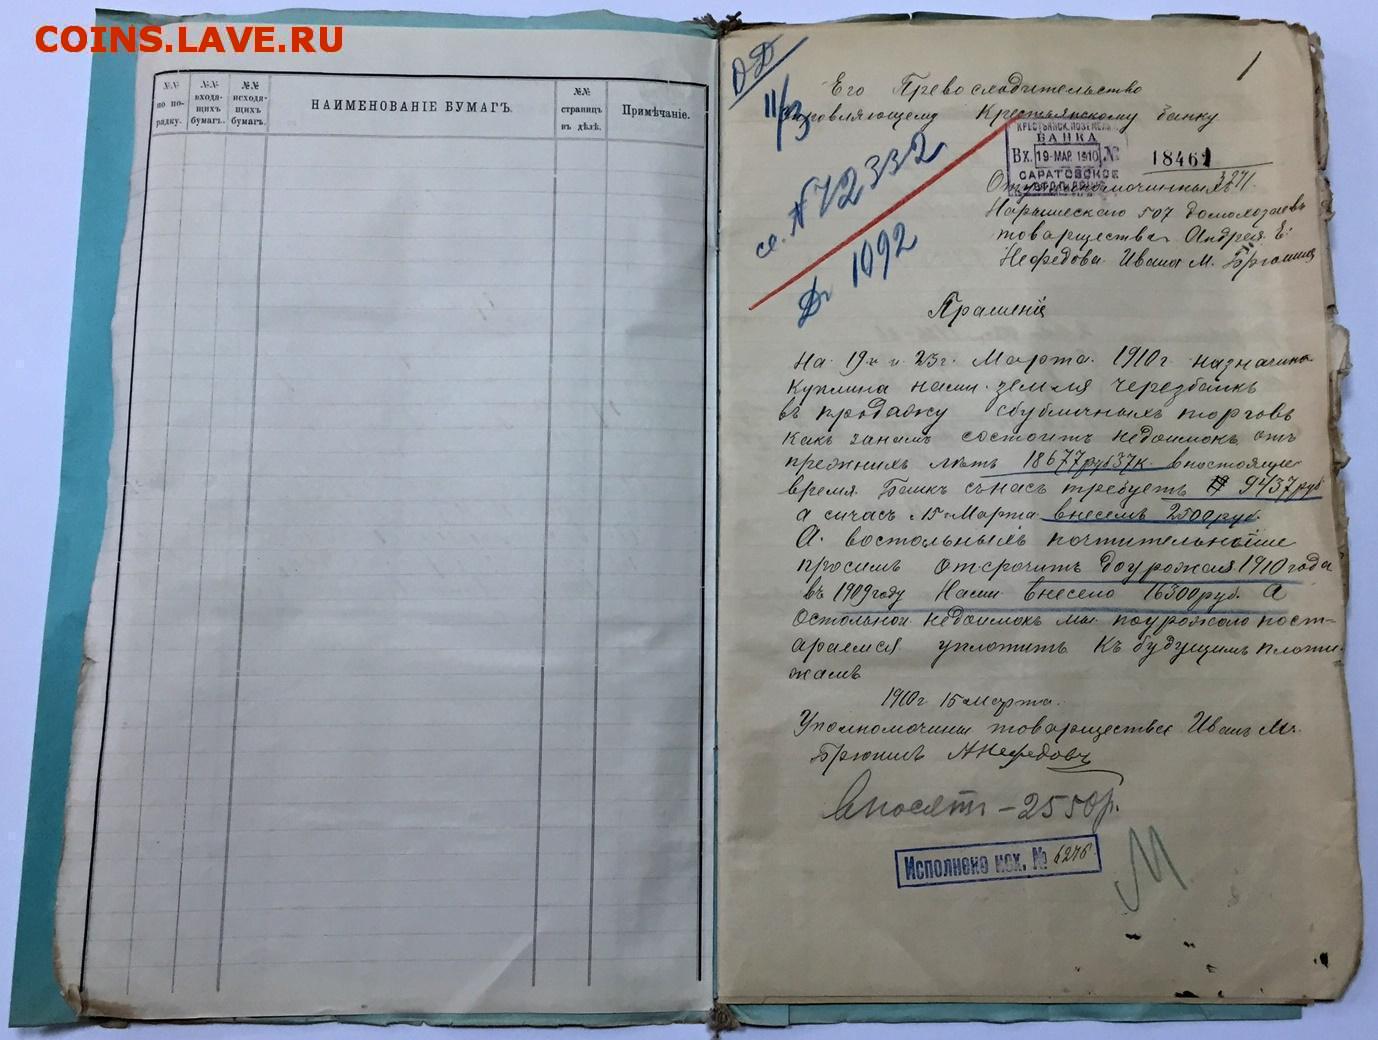 COINS.LAVE.RU
№№ по по-рядку.
№№ входя-щихъ бумагъ.
№№ исходя-щихъ бумагъ.
НАИМЕНОВАНІЕ БУМАГЪ.
№№ страницъ въ дѣлѣ.
Примѣчаніе.
1
О-Д
11/3
Его Превосходительство
Крестьянскому банку
КРЕСТЬЯНСК. ПОЗЕМЕЛ.
БАНКА
Вх. 19 МАР. 1910 №
18461
САРАТОВСКОЕ
ОТДѢЛЕНІЕ
3271
св. №72332
Дѣ 1092
507 домохозаевъ
товарщества Андрея Е:
Нефедова Ивана М.
Прашеніе
На 19 и 23 г. Марта 1910 г назначина
Куплина нами земля черезбанкъ
въ продажу спубличныхъ торговъ
Какъ занамъ состоитъ недоимокъ отъ
прежнихъ лѣтъ 18677 руб 37к. внастоящие
время Банкъ сънасъ требуетъ 9437 руб
а сичасъ 15 Марта внесемъ 2500 руб.
А востольныхъ почтительнѣише
просимъ отсрочить доурожая 1910 года
въ 1909 году Нами внесено 16300 руб. А
Остольной недоимокъ мы поурожаю пост-
араемся уплотить Къ будущимъ плоти-
жамъ
1910 г 15 Марта.
Уполномочины товарщества Иванъ М.
А Нефедовъ
Вносятъ - 2550 р.
Исполнено исх. № 6276
М